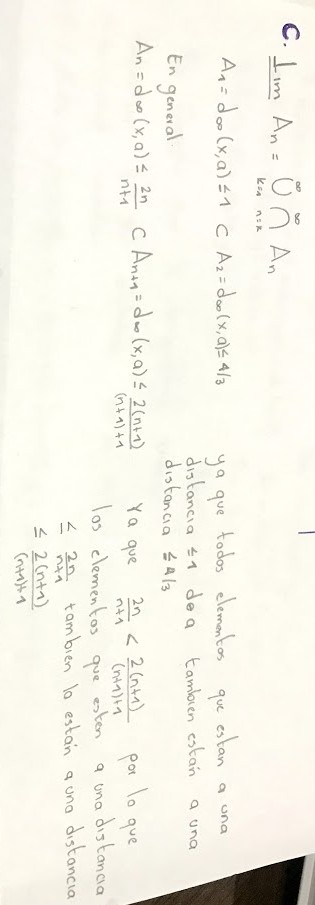 C. Lim An = ∞∪k=1 ∞∩n=k An
A1 = d∞(x,a) ≤ 1 ⊂ A2 = d∞(x,a) ≤ 4/3
ya que todos elementos que estan a una
distancia ≤ 1 de a tambien están a una
distancia ≤ 4/3
En general
An = d∞(x,a) ≤ 2n/(n+1) ⊂ An+1 = d∞(x,a) ≤ 2(n+1)/((n+1)+1)
Ya que 2n/(n+1) < 2(n+1)/((n+1)+1) por lo que
los elementos que esten a una distancia
≤ 2n/(n+1) tambien lo están a una distancia
≤ 2(n+1)/((n+1)+1)